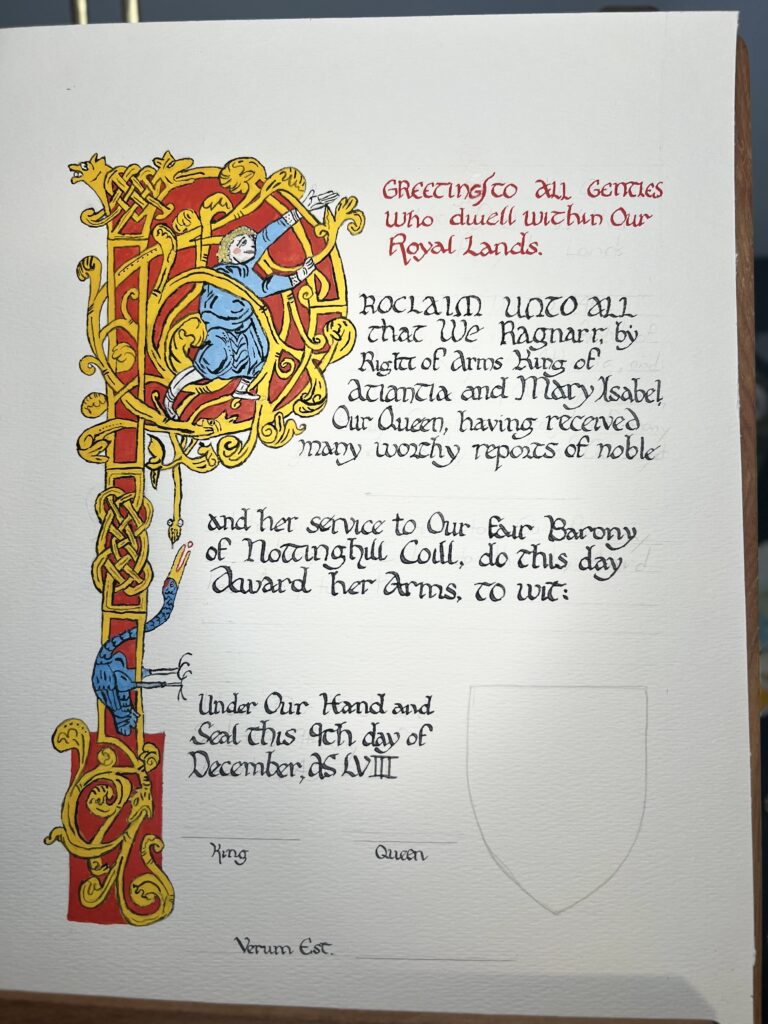 Greetings to all Gentles
who dwell within Our
Royal Lands.
PROCLAIM UNTO ALL
that We Ragnarr, by
Right of Arms King of
Atlantia and Mary Isabel,
Our Queen, having received
many worthy reports of noble
and her service to Our fair Barony
of Nottinghill Coill, do this day
Award her Arms, to wit:
Under Our Hand and
Seal this 9th day of
December, AS LVIII
King Queen
Verum Est.